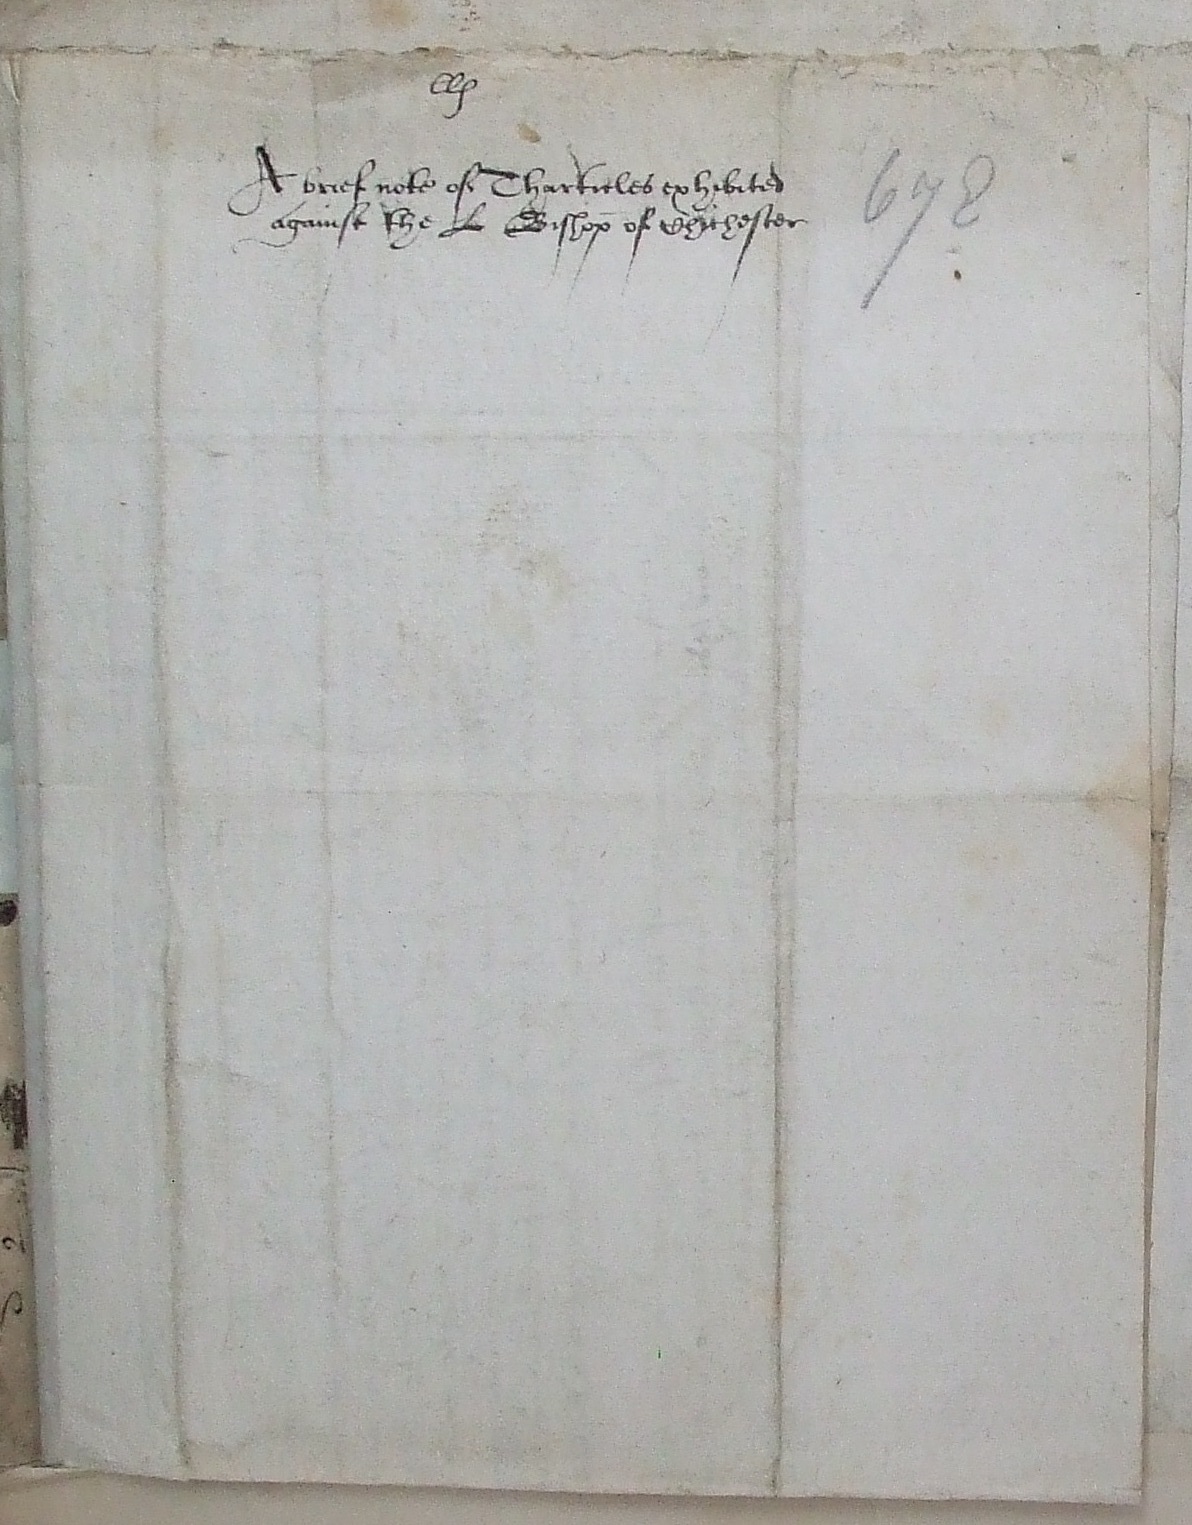 A brief note of Tharticles exhibited
against the L Bishop of Chichester
678